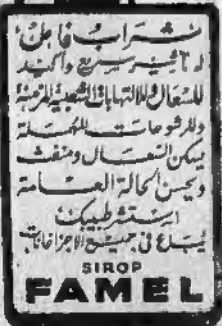 شراب فامل
له تأثير سريع وأكيد
للسعال والالتهابات الشعبية المزمنة
وللرشوحات المهملة
يسكن السعال وينفث
ويحسن الحالة العامة
استشر طبيبك
يباع في جميع الاجزاخانات
SIROP
FAMEL